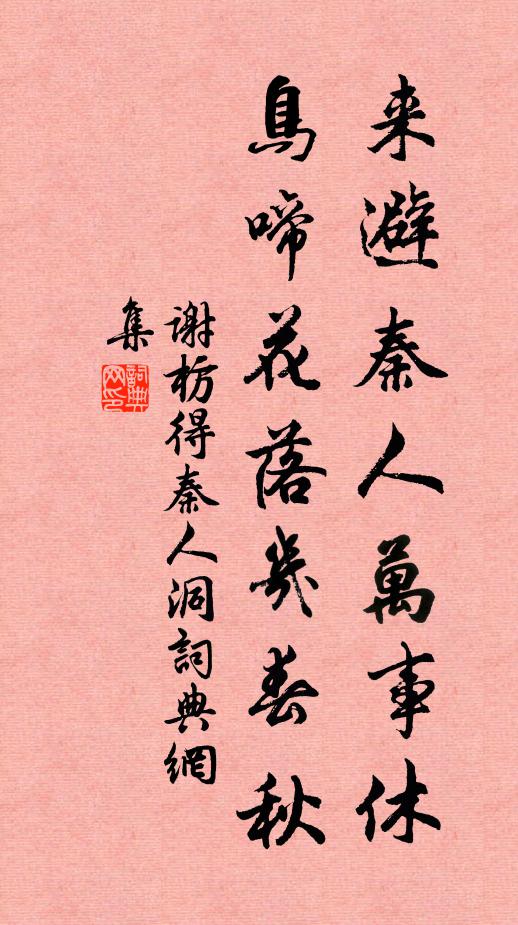 来避秦人萬事休
鳥啼花落幾春秋
謝枋得秦人洞詞典網
集
詞典
网印